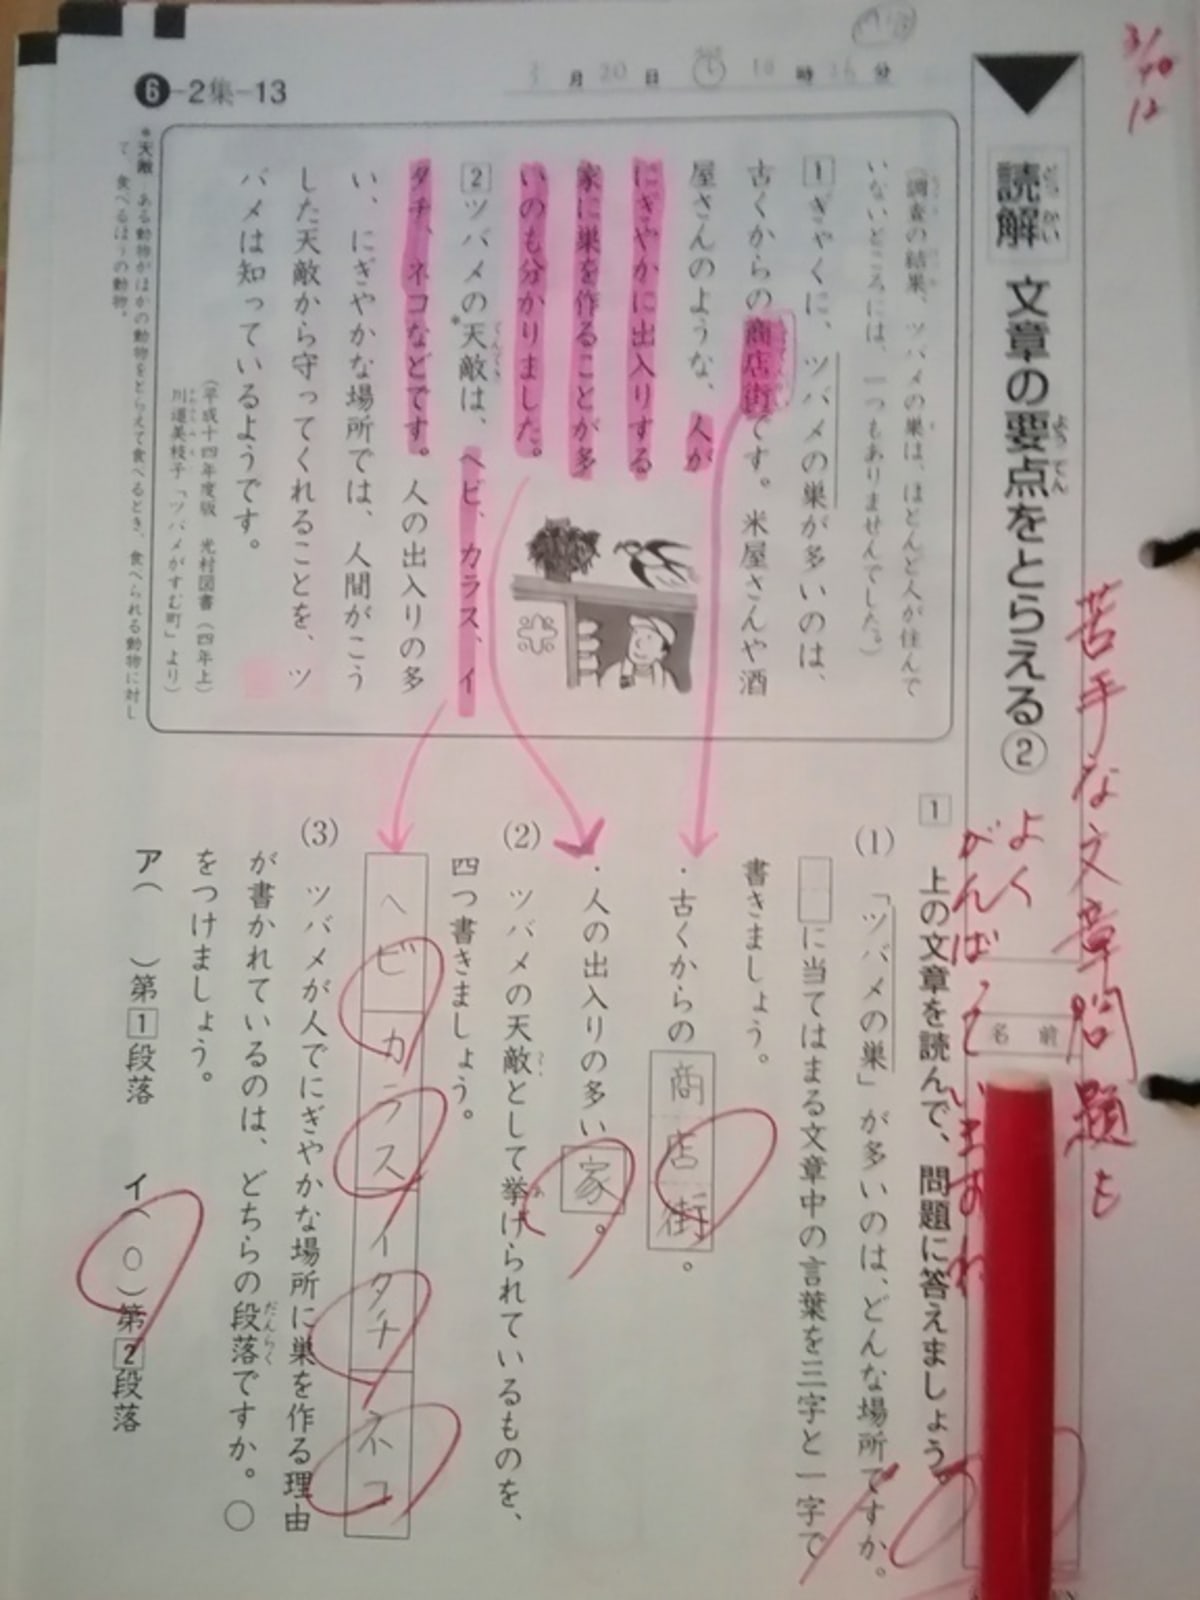 3/10
12
苦手な文章問題も
よく
がんばっていますね
読解 文章の要点をとらえる②
名前
6-2集-13
月20日 16時26分
(調査の結果、ツバメの巣は、ほとんど人が住んで
いないところには、一つもありませんでした。)
1ぎゃくに、ツバメの巣が多いのは、
古くからの商店街です。米屋さんや酒
屋さんのような、人が
にぎやかに出入りする
家に巣を作ることが多
いのも分かりました。
2ツバメの*天敵は、ヘビ、カラス、イ
タチ、ネコなどです。人の出入りの多
い、にぎやかな場所では、人間がこう
した天敵から守ってくれることを、ツ
バメは知っているようです。
(平成十四年度版 光村図書(四年上)
川道美枝子「ツバメがすむ町」より)
*天敵 ある動物がほかの動物をとらえて食べるとき、食べられる動物に対し
て、食べるほうの動物。
米
1 上の文章を読んで、問題に答えましょう。
(1) 「ツバメの巣」が多いのは、どんな場所ですか。
に当てはまる文章中の言葉を三字と一字で
書きましょう。
・古くからの商店街。
・人の出入りの多い家。
(2) ツバメの天敵として挙げられているものを、
四つ書きましょう。
ヘビ カラス イタチ ネコ
(3) ツバメが人でにぎやかな場所に巣を作る理由
が書かれているのは、どちらの段落ですか。○
をつけましょう。
ア( )第1段落 イ(○)第2段落